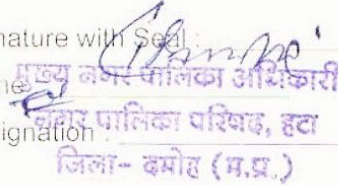 nature with Seal :
मुख्य नगर पालिका अधिकारी
me
नगर पालिका परिषद, हटा
ignation
जिला- दमोह (म.प्र.)